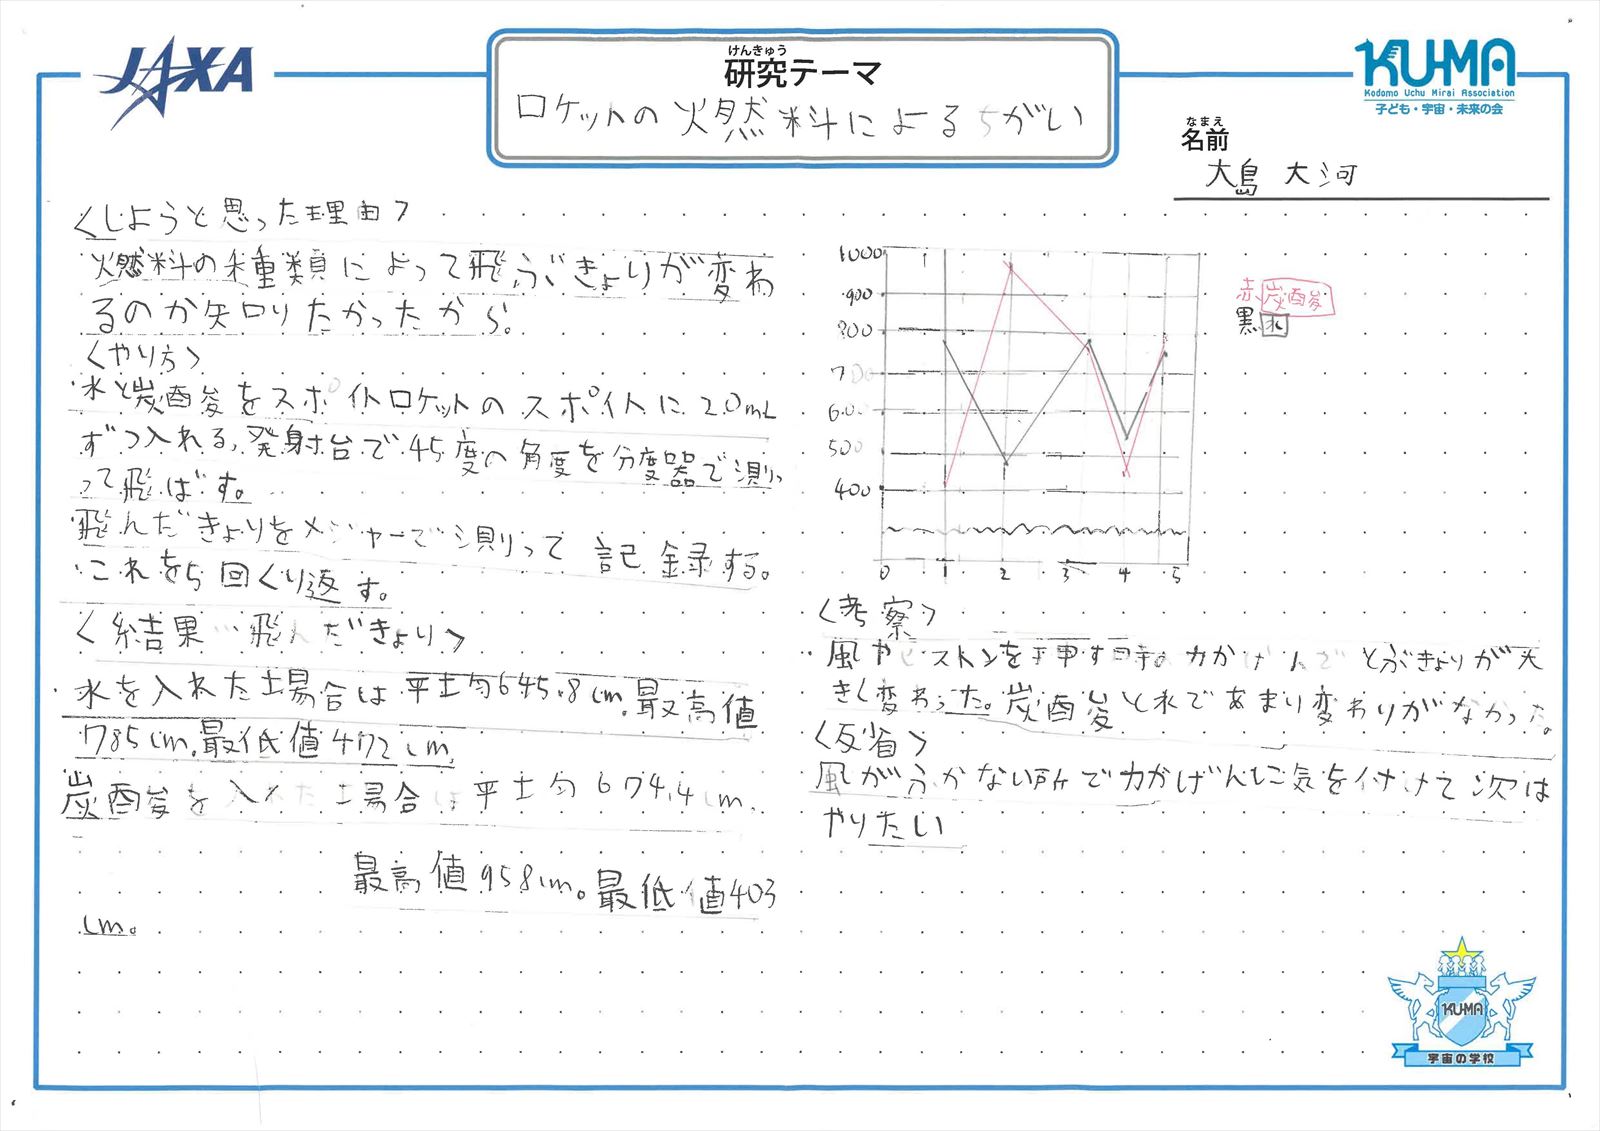 JAXA
けんきゅう
研究テーマ
ロケットの燃料によるちがい
KU-MA
Kodomo Uchu Mirai Association
子ども・宇宙・未来の会
なまえ
名前
大島 大河
<しようと思った理由>
燃料の種類によって飛ぶきょりが変わ
るのか知りたかったから。
<やり方>
水と炭酸をスポイトロケットのスポイトに2.0mL
ずつ入れる,発射台で45度の角度を分度器で測
って飛ばす。
飛んだきょりをメジャーで測って記録する。
これを5回くり返す。
<結果…飛んだきょり>
水を入れた場合は平均645.8cm.最高値
785cm.最低値472cm.
炭酸を入れた場合は平均674.4cm.
最高値958cm。最低値403
cm。
1000
900
800
700
600
500
400
0 1 2 3 4 5
赤 炭酸
黒 水
<考察>
風やピストンを押す時の力かげんでとぶきょりが大
きく変わった。炭酸と水であまり変わりがなかった。
<反省>
風がふかない所で力かげんに気を付けて次は
やりたい
KU-MA
宇宙の学校